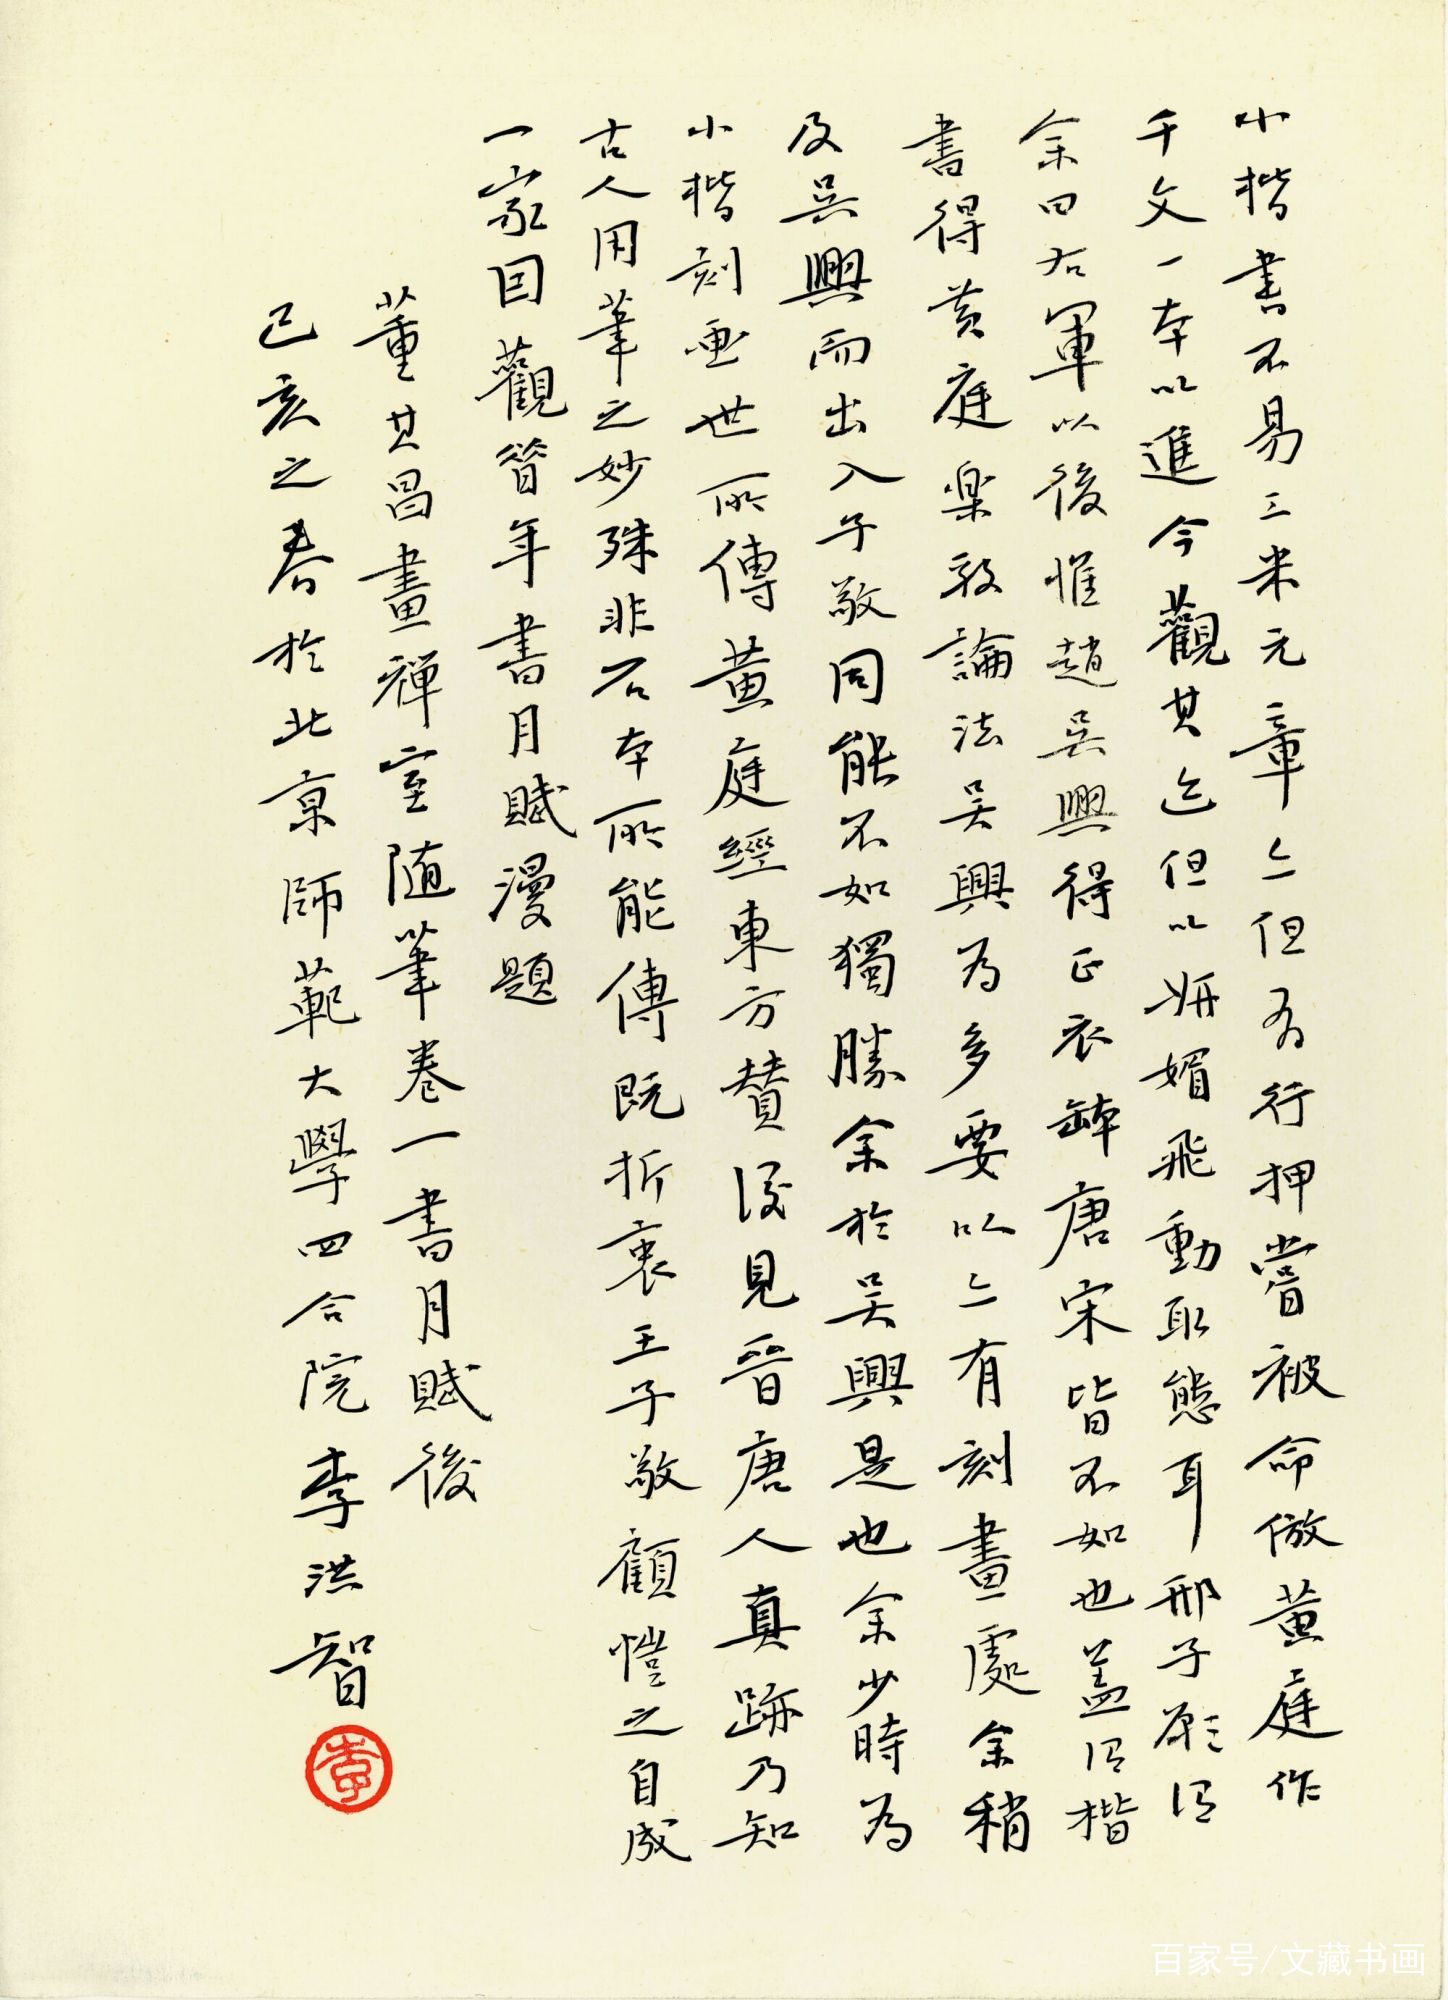 小楷書不易工米元章亦但有行押嘗被命倣黄庭作
千文一本以進今觀其迹但以妍媚飛動取態耳邢子愿謂
余曰右軍以後惟趙吳興得正衣鉢唐宋皆不如也盖謂楷
書得黄庭樂毅論法吳興為多要以亦有刻畫處余稍
及吳興而出入子敬同能不如獨勝余於吳興是也余少時為
小楷刻画世所傳黄庭經東方赞後見晉唐人真跡乃知
古人用筆之妙殊非石本所能傳既折衷王子敬顧愷之自成
一家因觀昔年書月賦漫題
董其昌畫禪室随筆卷一書月賦後
己亥之春於北京師範大學四合院李洪智
李
百家号/文藏书画